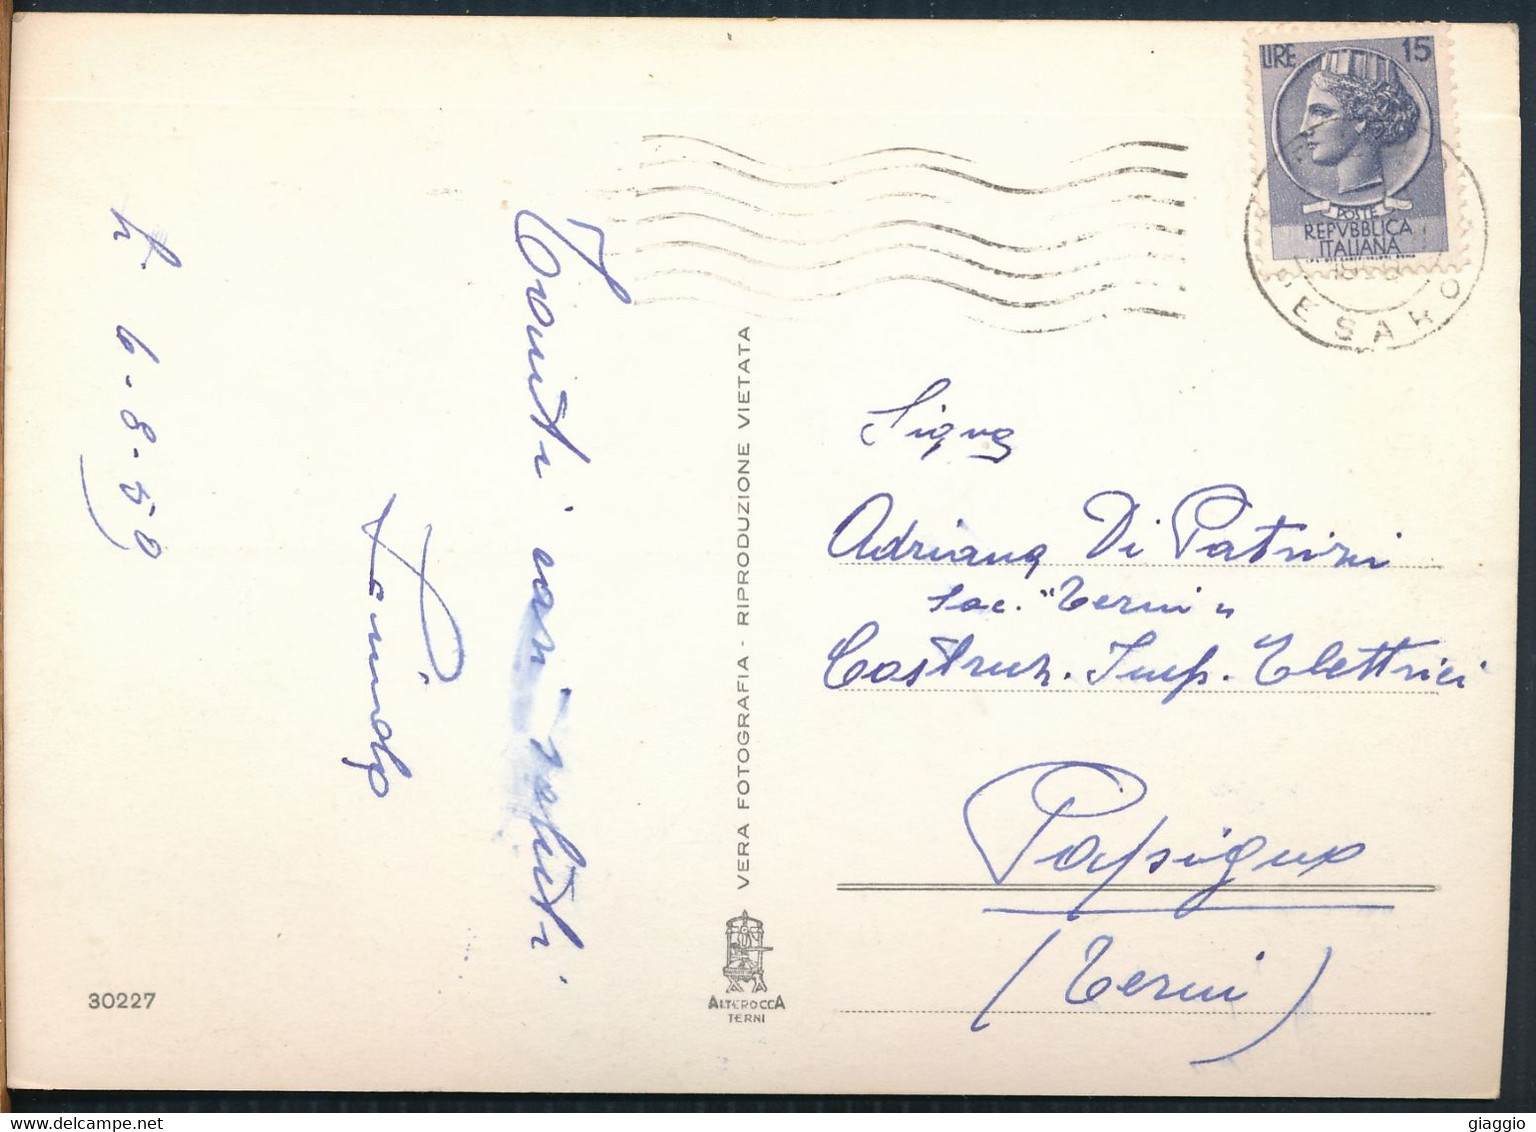 lì 6-8-59
Tanti cari saluti
30227
VERA FOTOGRAFIA - RIPRODUZIONE VIETATA
ALTEROCCA
TERNI
LIRE 15
POSTE
REPVBBLICA
ITALIANA
PESARO
Sig.na
Adriana Di Patrizi
Soc. "Terni"
Costruz. Imp. Elettrici
Papigno
(Terni)
giaggio